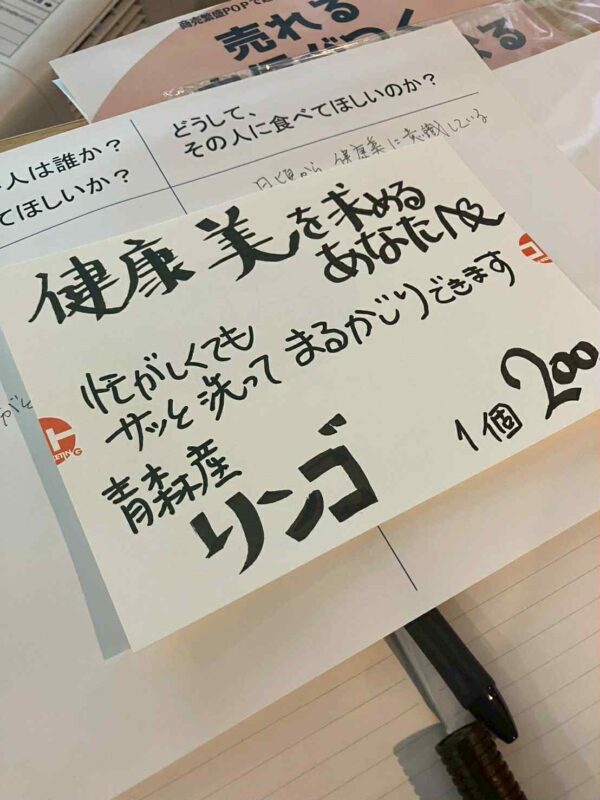 商売繁盛POPで
売れる
どうして、
その人に食べてほしいのか？
人は誰か？
てほしいか？
日頃から 健康美に意識している
健康美を求める
あなたへ
忙がしくても
サッと洗って まるかじりできます
青森産
リンゴ
1個 200